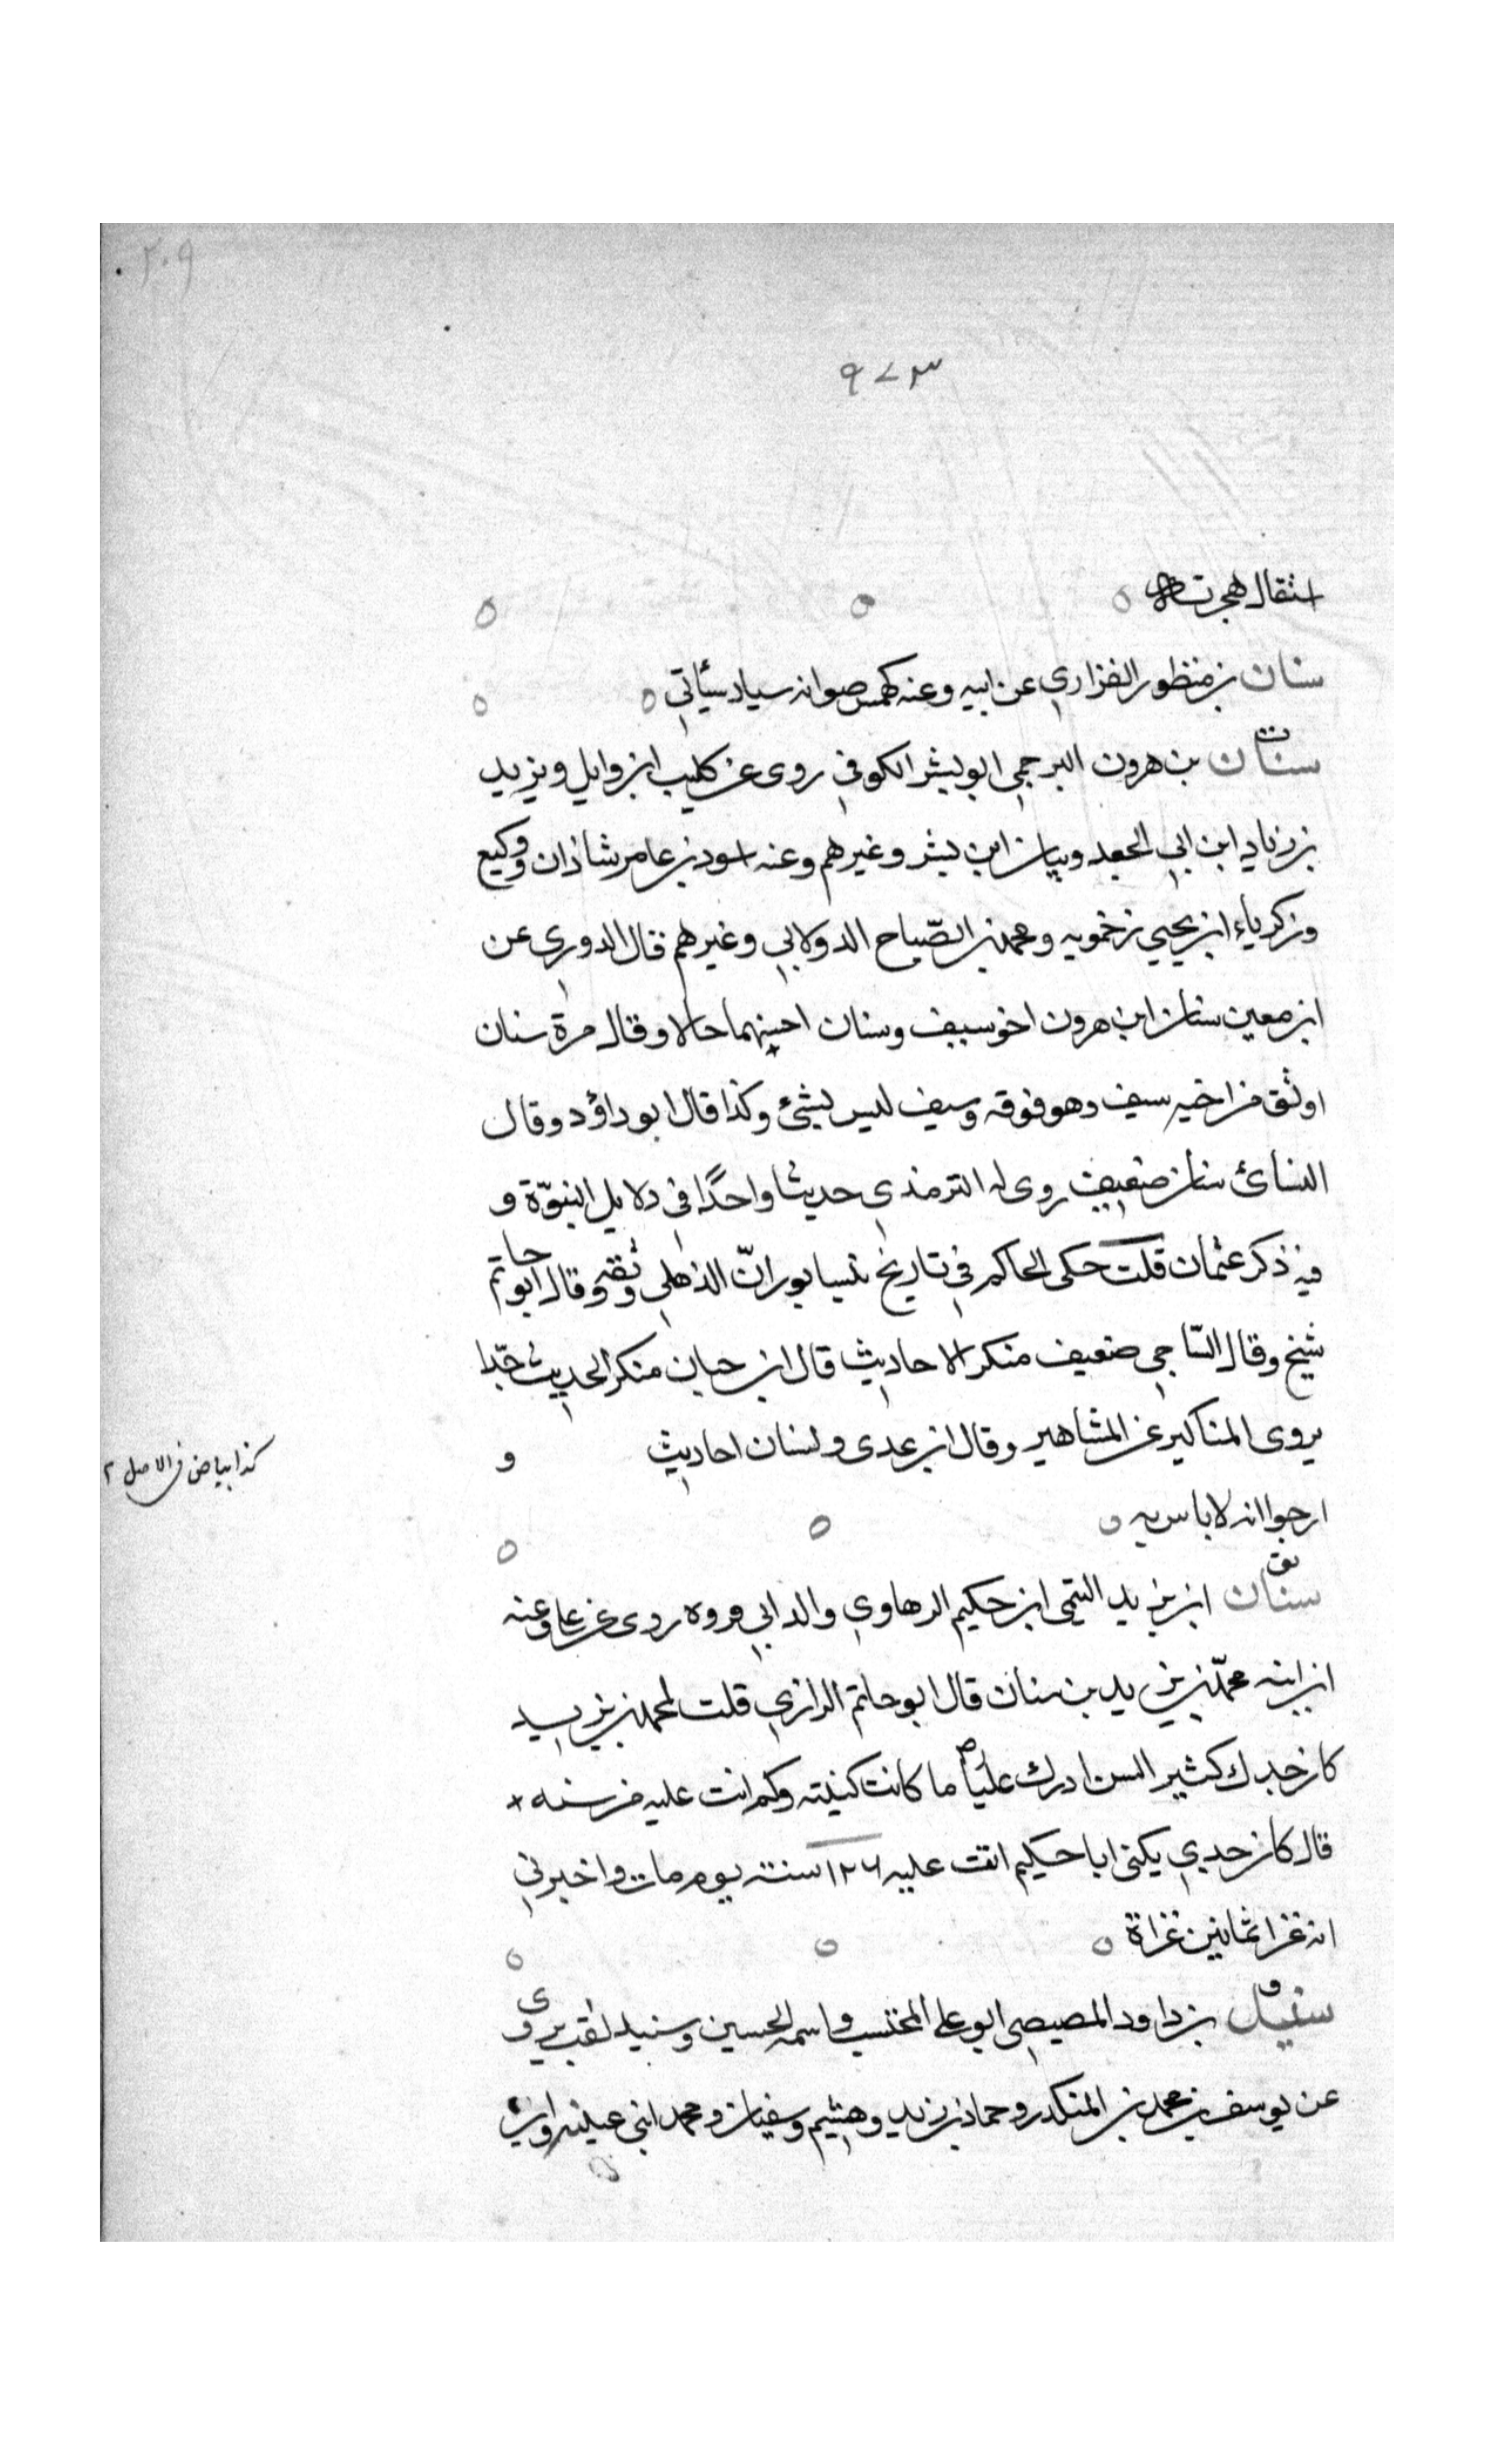 ٢٠٩
٩٧٣
استقال هجرته
سنان بن منظور الفزاري عن ابيه وعنه كهمس صوابه سيار سيأتي
ت
سنان بن هرون البرجمي ابو بشر الكوفي روى عن كليب ابن وايل ويزيد
بن زياد ابن ابي الجعد وبيان ابن بشر وغيرهم وعنه اسود بن عامر شاذان ووكيع
وزكرياء ابن يحيي زحمويه ومحمد بن الصّباح الدولابي وغيرهم قال الدوري عن
ابن معين سنان ابن هرون اخو سيف وسنان احسنهما حالا وقال مرة سنان
اوثق من اخيه سيف وهو فوقه وسيف ليس بشئ وكذا قال ابو داؤد وقال
النسائ سنان ضعيف روى له الترمذي حديثا واحدًا في دلايل النبوّة و
فيه ذكر عثمان قلت حكى الحاكم في تاريخ نيسابور انّ الذهلي وثقه وقال ابو حاتم
شيخ وقال السّاجي ضعيف منكر الاحاديث قال ابن حبان منكر الحديث جّدا
يروى المناكير عن المشاهير وقال ابن عدى ولسنان احاديث و
كذا بياض في الاصل ٢
ارجوا انه لا باس به
فق
سنان ابن يزيد التيمي ابن حكيم الرهاوي والد ابي فروه روى عن علي وعنه
ابن ابنه محمّد بن يزيد بن سنان قال ابو حاتم الرازي قلت لمحمد بن يزيد
كان جدك كثير السن ادرك عليًا ما كانت كنيته وكم اتت عليه من سنه
قال كان جدي يكنى ابا حكيم اتت عليه ١٢٦ سنة يوم مات واخبرني
انه غزا ثمانين غزاة
ق
سنيد بن داود المصيصي ابو علي المحتسب واسمه الحسين وسنيد لقب روى
عن يوسف بن محمد بن المنكدر وحماد بن زيد وهشيم وسفيان ومحمد ابني عيينه